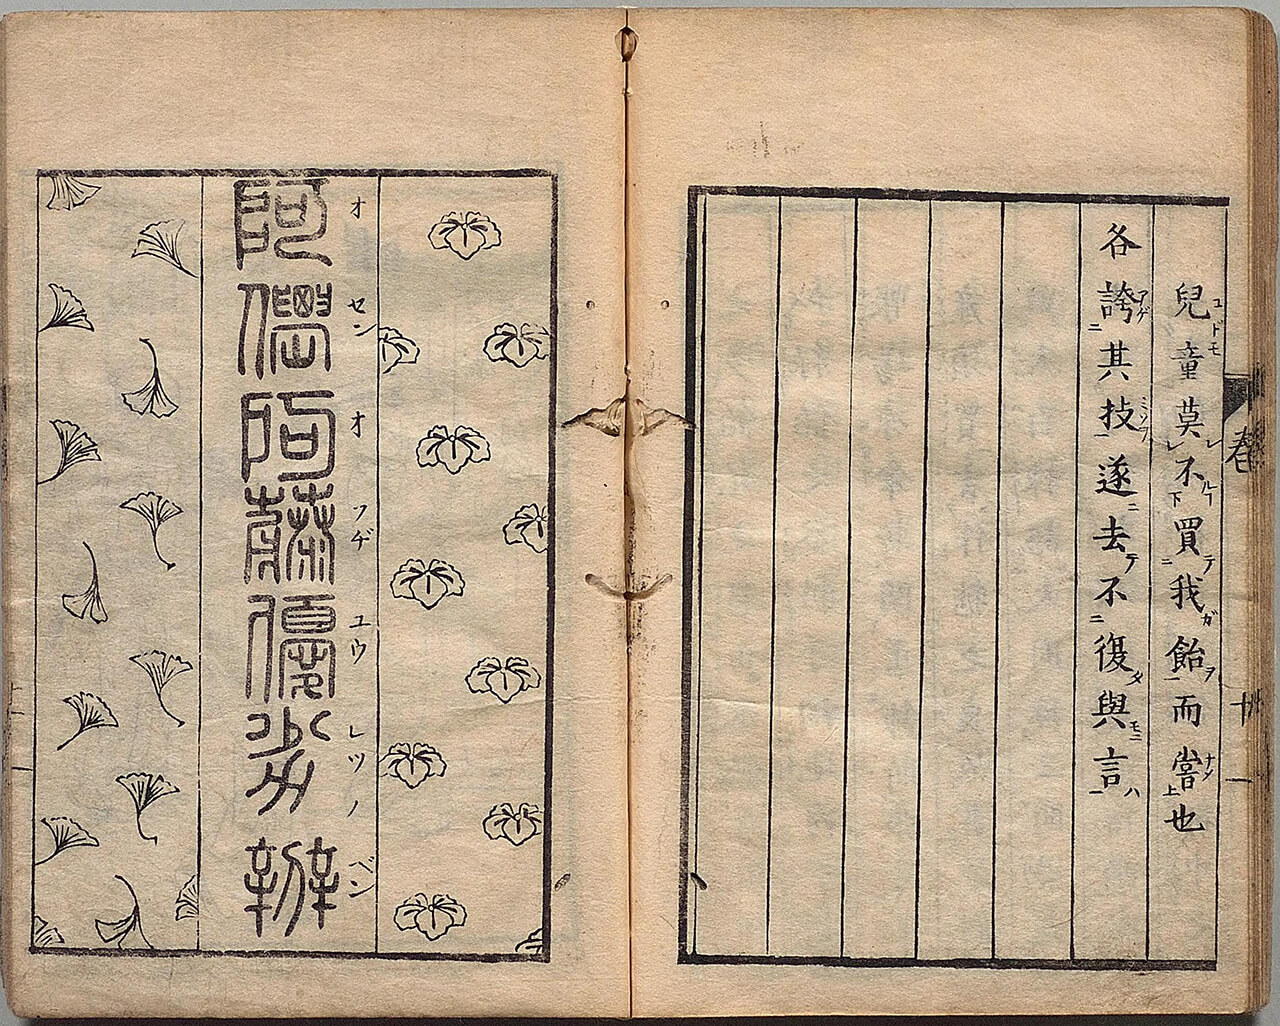 兒童莫不買我飴而嘗也
コドモ
各誇其技遂去不復與言
春
十
阿僊阿藤優劣辨
オセンオフヂユウレツノベン